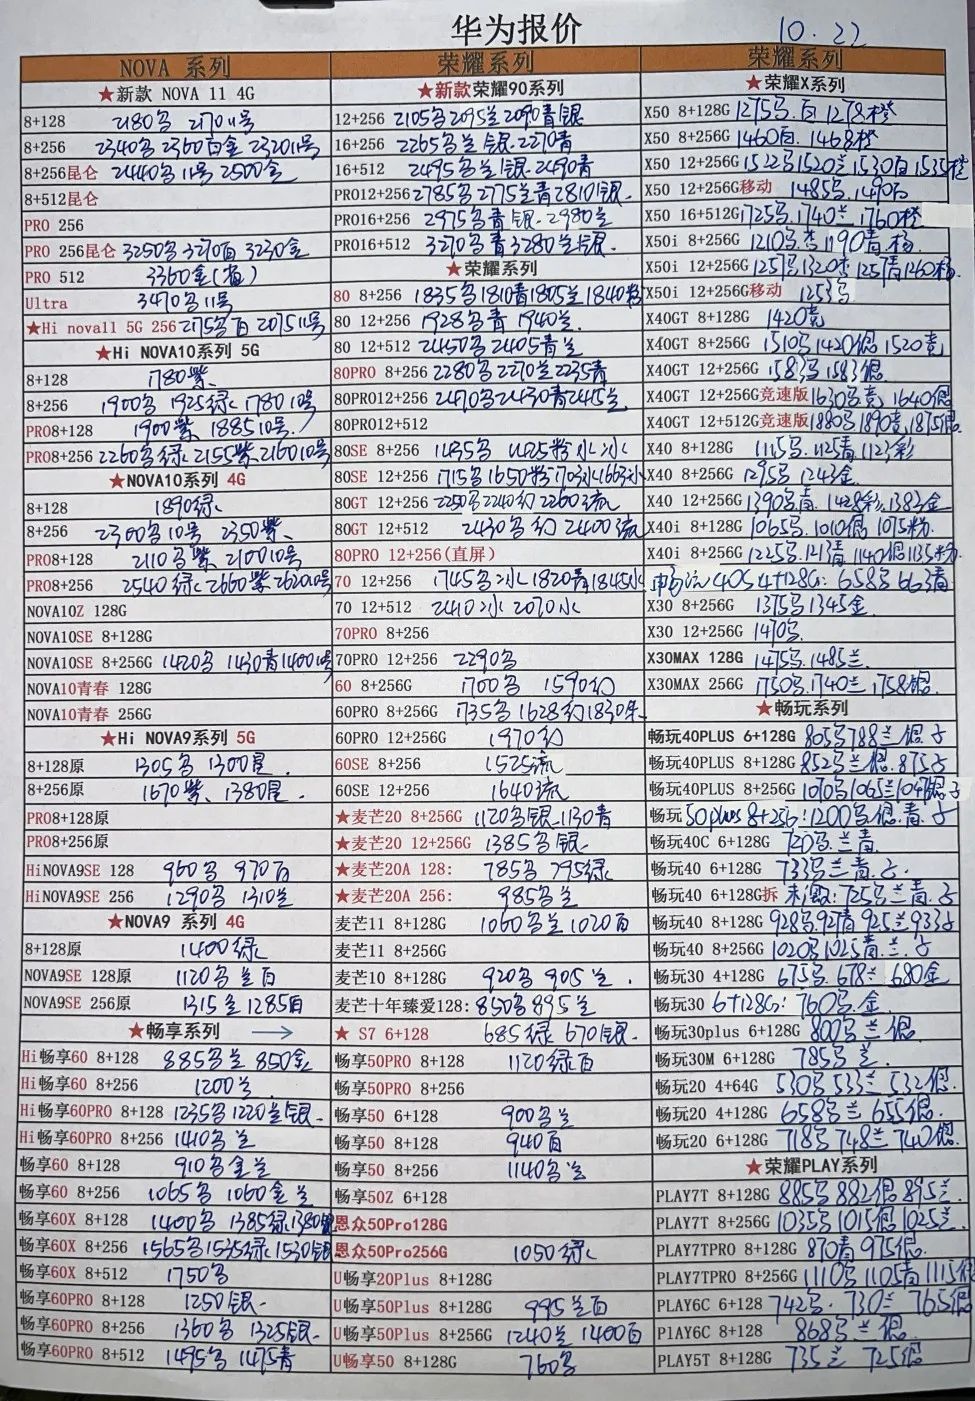 华为报价
10.22
NOVA 系列
★新款 NOVA 11 4G
8+128 2180名 2170 11号
8+256 2340名 2360百金 2320 11号
8+256昆仑 2440名11号 2500金
8+512昆仑
PRO 256
PRO 256昆仑 3250名 3270百 3230金
PRO 512 3360金
Ultra 3470名11号
★Hi nova11 5G 256 2175名百 2075 11号
★Hi NOVA10系列 5G
8+128 1780紫
8+256 1900名 1925绿 1780 10号
PRO8+128 1900紫 1885 10号
PRO8+256 2260名绿 2155紫 2160 10号
★NOVA10系列 4G
8+128 1890绿
8+256 2300名10号 2350紫
PRO8+128 2110名紫 2100 10号
PRO8+256 2540绿 2660紫 2620 10号
NOVA10Z 128G
NOVA10SE 8+128G
NOVA10SE 8+256G 1420名 1430青 1400 10号
NOVA10青春 128G
NOVA10青春 256G
★Hi NOVA9系列 5G
8+128原 1305名 1300星
8+256原 1670紫 1380星
PRO8+128原
PRO8+256原
HiNOVA9SE 128 960名 970百
HiNOVA9SE 256 1290名 1310兰
★NOVA9 系列 4G
8+128原 1400绿
NOVA9SE 128原 1120名兰百
NOVA9SE 256原 1315兰 1285百
★畅享系列 →
Hi畅享60 8+128 885名兰 850金
Hi畅享60 8+256 1200兰
Hi畅享60PRO 8+128 1235名 1220兰银
Hi畅享60PRO 8+256 1410名兰
畅享60 8+128 910名金兰
畅享60 8+256 1065名 1060金兰
畅享60X 8+128 1400名 1385绿 1380银
畅享60X 8+256 1565名 1535绿 1530银
畅享60X 8+512 1750名
畅享60PRO 8+128 1250银
畅享60PRO 8+256 1360名 1325银
畅享60PRO 8+512 1495名 1475青
荣耀系列
★新款荣耀90系列
12+256 2105名 2095兰 2090青银
16+256 2265名兰银 2270青
16+512 2495名兰银 2490青
PRO12+256 2785名 2775兰青 2810银
PRO16+256 2975名青银 2980兰
PRO16+512 3270名青 3280兰银
★荣耀系列
80 8+256 1835名 1810青 1805兰 1840粉
80 12+256 1928名青 1940兰
80 12+512 2450名 2405青兰
80PRO 8+256 2280名 2270兰 2235青
80PRO12+256 2470名 2430青 2445兰
80PRO12+512
80SE 8+256 1435名 1425粉冰水
80SE 12+256 1715名 1650粉 1703冰 1663水
80GT 12+256 2250名 2240幻 2260流
80GT 12+512 2430名幻 2400流
80PRO 12+256(直屏)
70 12+256 1745名冰 1820青 1845水
70 12+512 2410冰 2070水
70PRO 8+256
70PRO 12+256 2290名
60 8+256G 1700名 1590幻
60PRO 8+256G 1735名 1628幻 1830朱
60PRO 12+256G 1970幻
60SE 8+256 1525流
60SE 12+256 1640流
★麦芒20 8+256G 1120名银 1130青
★麦芒20 12+256G 1385名银
★麦芒20A 128: 785名 795绿
★麦芒20A 256: 985名兰
麦芒11 8+128G 1060名兰 1020百
麦芒11 8+256G
麦芒10 8+128G 920名 905兰
麦芒十年臻爱128: 850名 895兰
★ S7 6+128 685绿 670银
畅享50PRO 8+128 1120绿百
畅享50PRO 8+256
畅享50 6+128 900名兰
畅享50 8+128 940百
畅享50 8+256 1140名兰
畅享50Z 6+128
恩众50Pro128G
恩众50Pro256G 1050绿
U畅享20Plus 8+128G
U畅享50Plus 8+128G 995兰百
U畅享50Plus 8+256G 1240兰 1400百
U畅享50 8+128G 760名
荣耀系列
★荣耀X系列
X50 8+128G 1275名百 1278橙
X50 8+256G 1460百 1468橙
X50 12+256G 1522名 1520兰 1530百 1535橙
X50 12+256G移动 1485名 1490百
X50 16+512G 1725名 1740兰 1760橙
X50i 8+256G 1210名杏 1190青杨
X50i 12+256G 1257名 1320杏 1257青 1260杨
X50i 12+256G移动 1253名
X40GT 8+128G 1420竞
X40GT 8+256G 1510名 1420偲 1520竞
X40GT 12+256G 1583名 1583偲
X40GT 12+256G竞速版 1630名竞 1640偲
X40GT 12+512G竞速版 1880名 1890竞 1875偲
X40 8+128G 1115名 1125青 1123彩
X40 8+256G 1295名 1243金
X40 12+256G 1390名青 1428彩 1383金
X40i 8+128G 1065名 1010偲 1075粉
X40i 8+256G 1225名 1213青 1140偲 1135粉
畅玩40S 4+128G: 658名 663青
X30 8+256G 1375名 1345金
X30 12+256G 1470名
X30MAX 128G 1475名 1485兰
X30MAX 256G 1750名 1740兰 1758偲
★畅玩系列
畅玩40PLUS 6+128G 805名 788兰偲子
畅玩40PLUS 8+128G 852名兰偲 875子
畅玩40PLUS 8+256G 1070名 1065兰 1047偲子
畅玩50plus 8+256: 1200名偲青子
畅玩40C 6+128G 720名兰青
畅玩40 6+128G 733名兰青子
畅玩40 6+128G拆 未激: 725名兰青子
畅玩40 8+128G 928名 927青 925兰 933子
畅玩40 8+256G 1020名 1025青兰子
畅玩30 4+128G 675名 678兰 680金
畅玩30 6+128G: 760名金
畅玩30plus 6+128G 800名兰偲
畅玩30M 6+128G 785名兰
畅玩20 4+64G 530名 533兰 532偲
畅玩20 4+128G 658名兰 655偲
畅玩20 6+128G 718名 748兰 740偲
★荣耀PLAY系列
PLAY7T 8+128G 885名 882偲 895兰
PLAY7T 8+256G 1035名 1015偲 1025兰
PLAY7TPRO 8+128G 870青 975偲
PLAY7TPRO 8+256G 1110名 1105青 1115偲
PLAY6C 6+128 742名 730兰 765偲
PlAY6C 8+128 868名兰偲
PLAY5T 8+128G 735兰 725偲